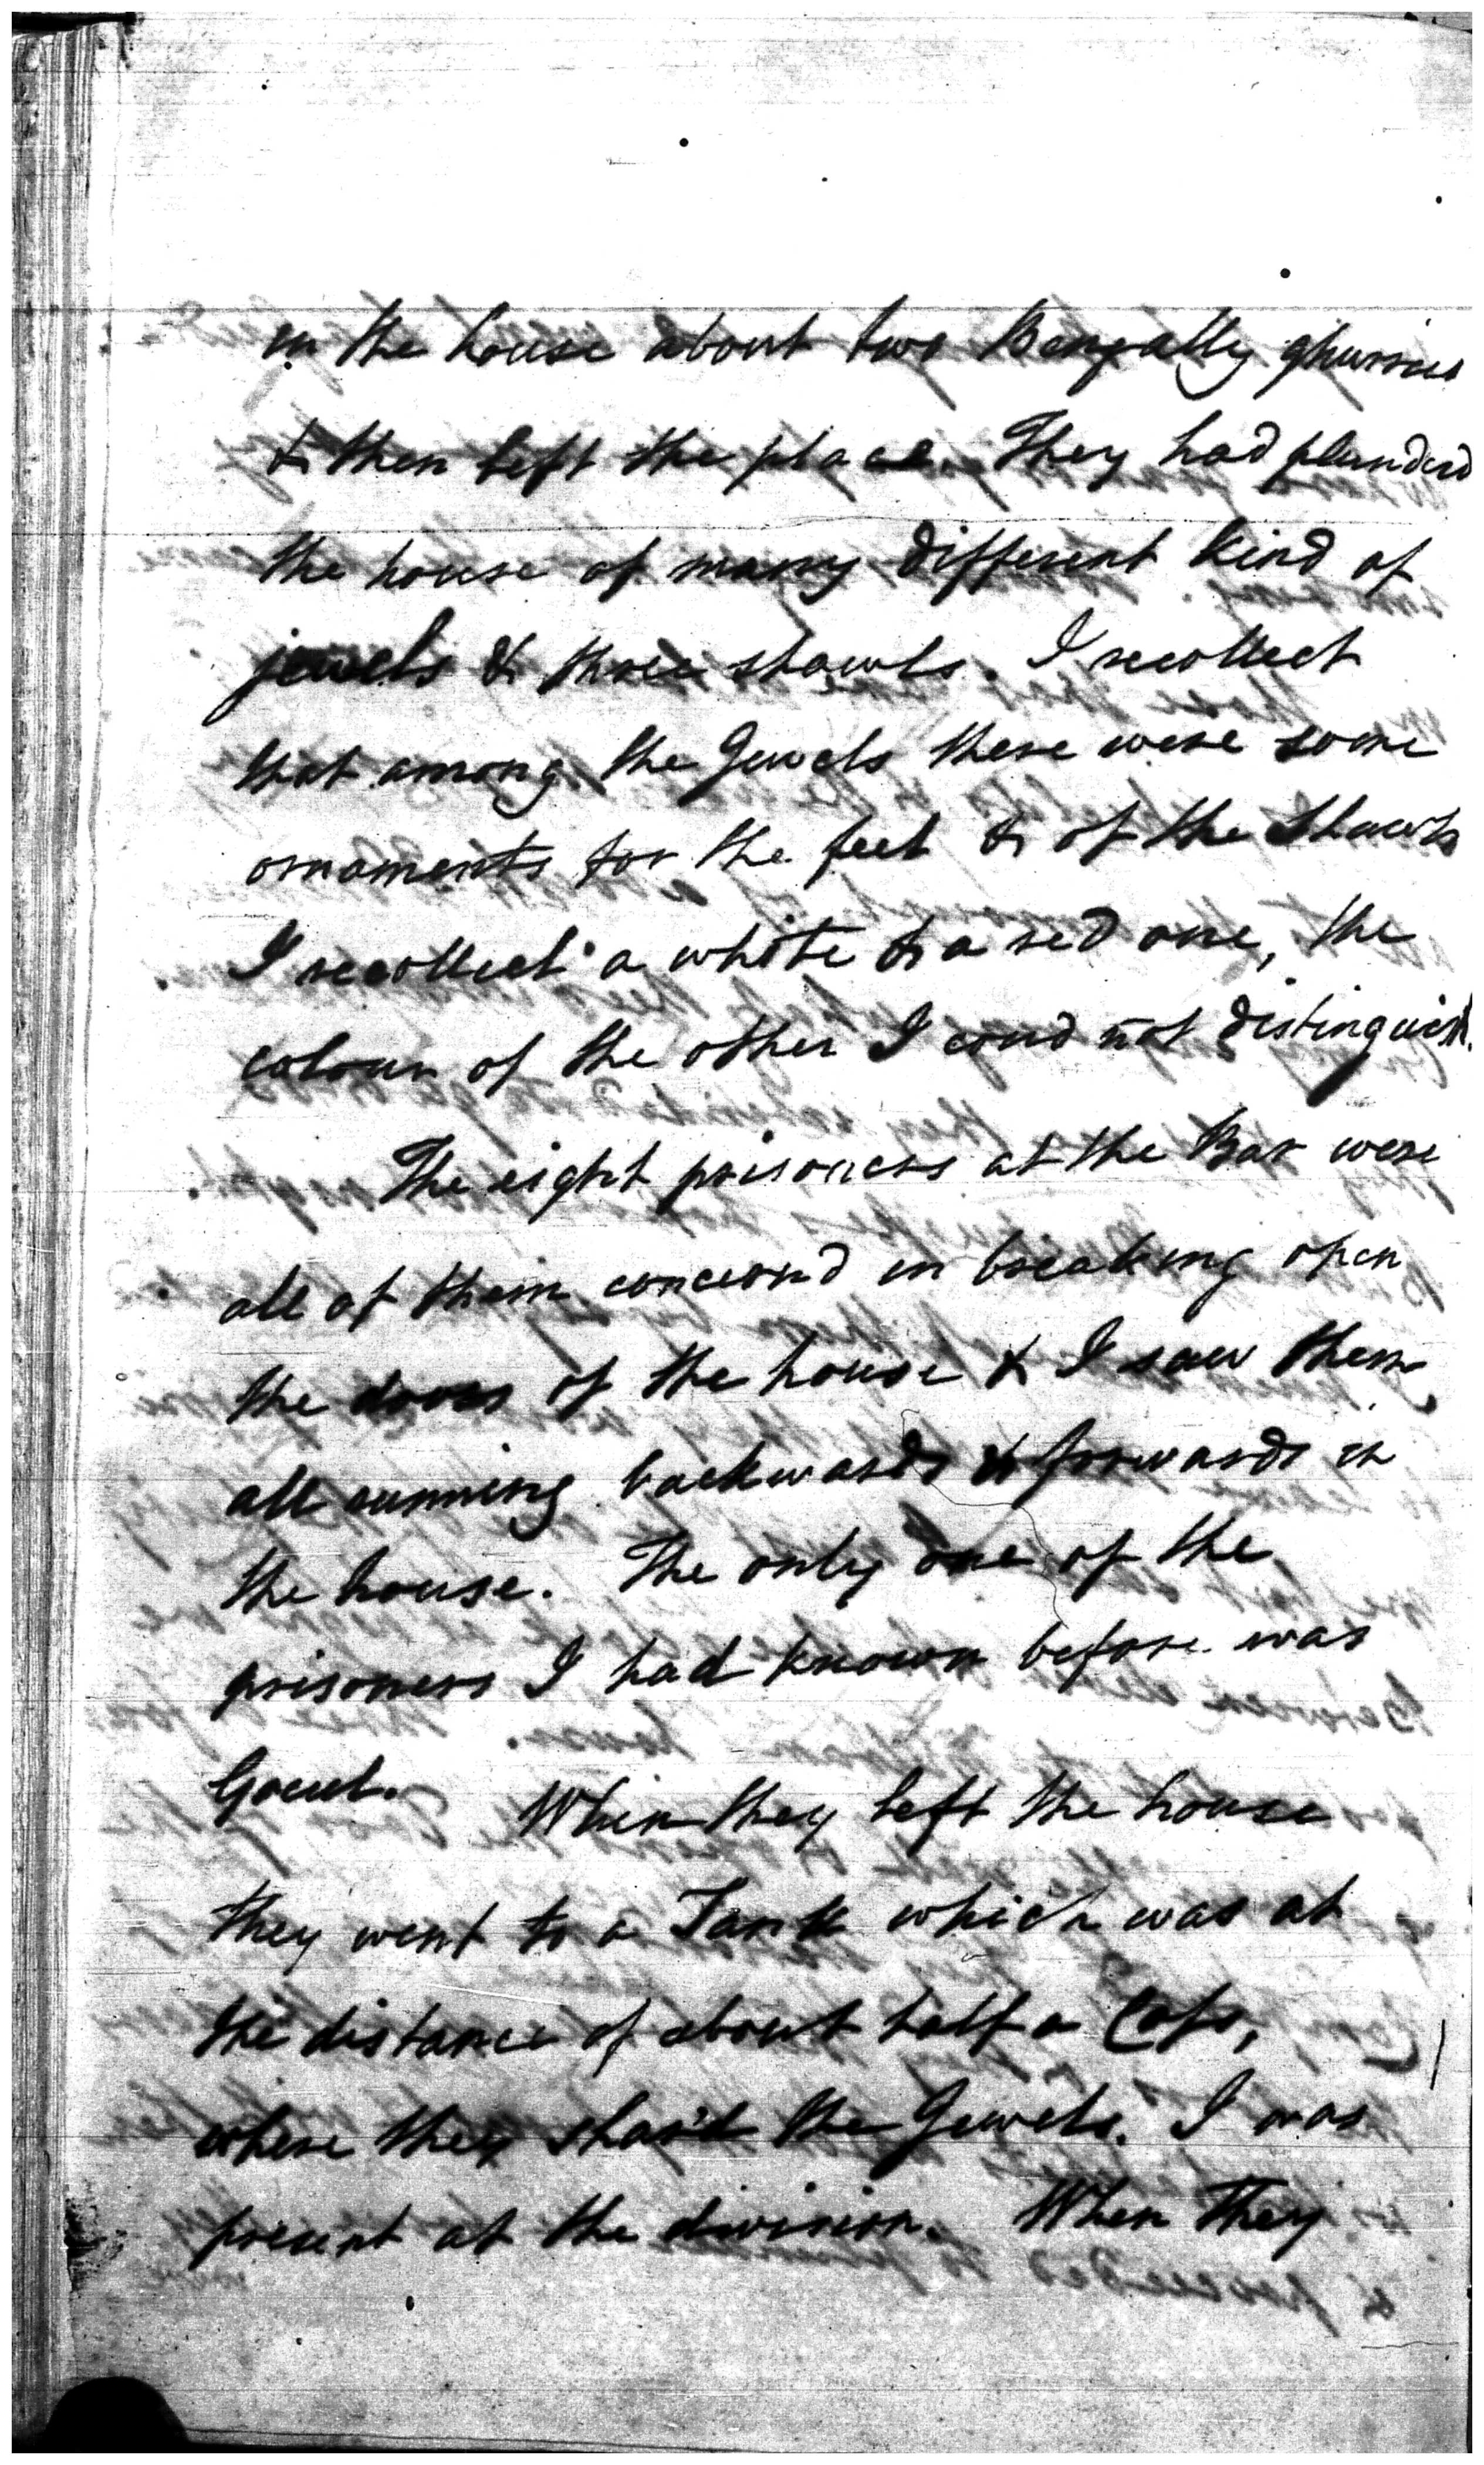 in the house about two Bengally ghurries
& then left the place. They had plunderd
the house of many different kind of
jewels & three shawls. I recollect
that among the Jewels there were some
ornaments for the feet & of the Shawls
I recollect a white & a red one, the
colour of the other I coud not distinguish.
The eight prisoners at the Bar were
all of them concernd in breaking open
the doors of the house & I saw them
all running backwards & forwards in
the house. The only one of the
prisoners I had known before was
Gocul. When they left the house
they went to a Tank which was at
the distance of about half a Coss,
where they shar'd the Jewels. I was
present at the division. When They